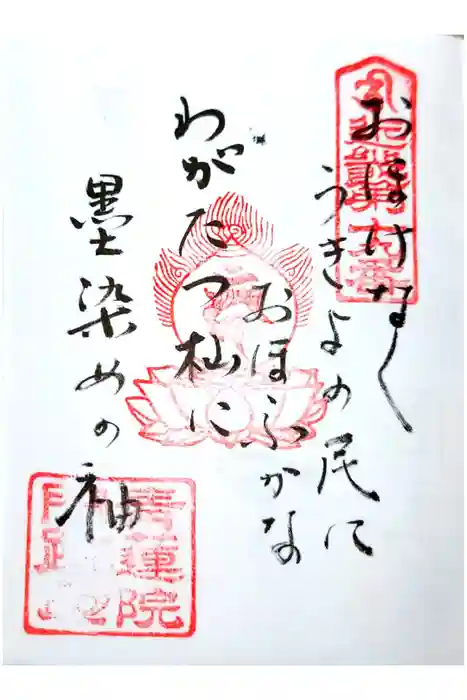 おほけなく
うきよの民に
おほふかな
わがたつ杣に
墨染めの袖
青蓮院